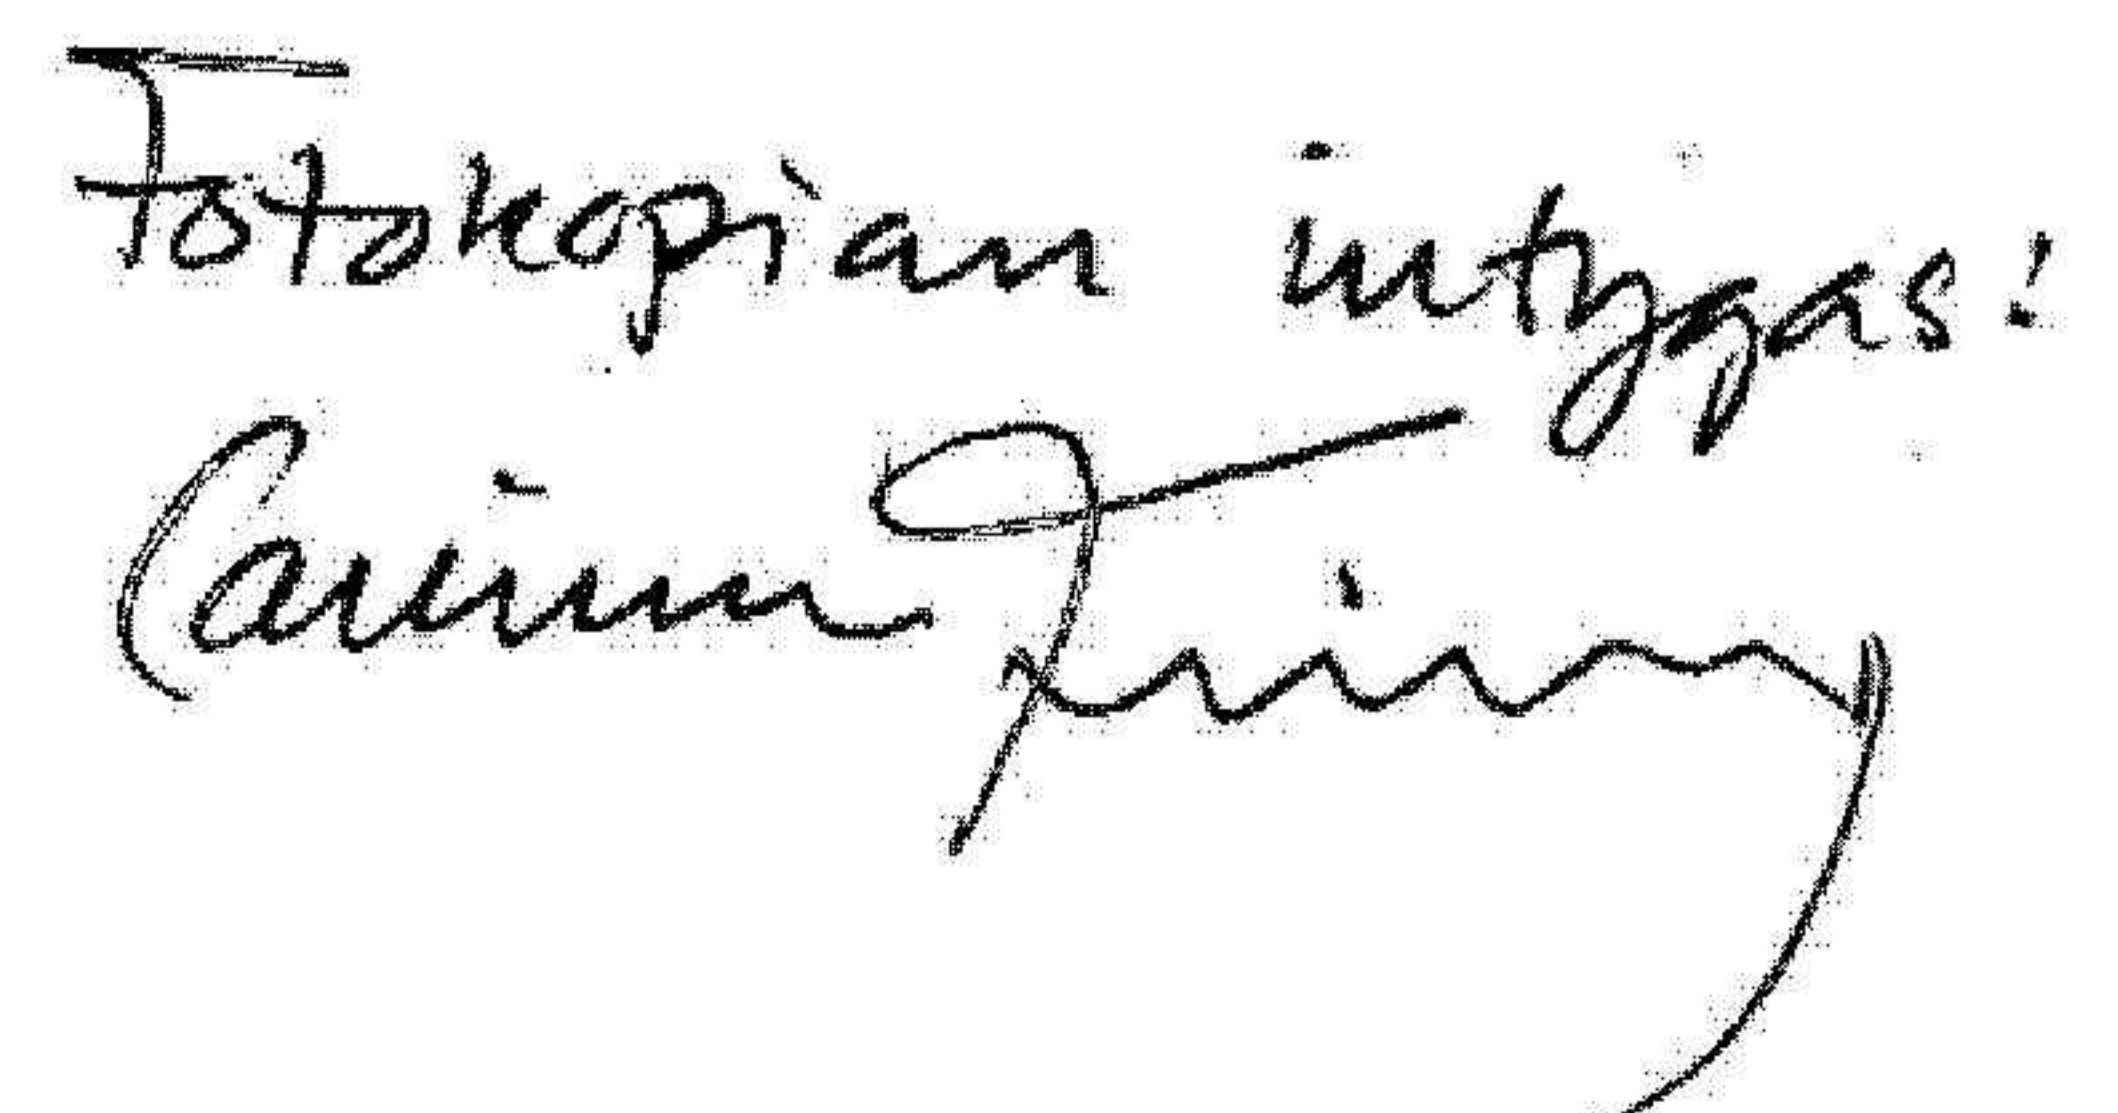 Fotokopian intygas!
Carina